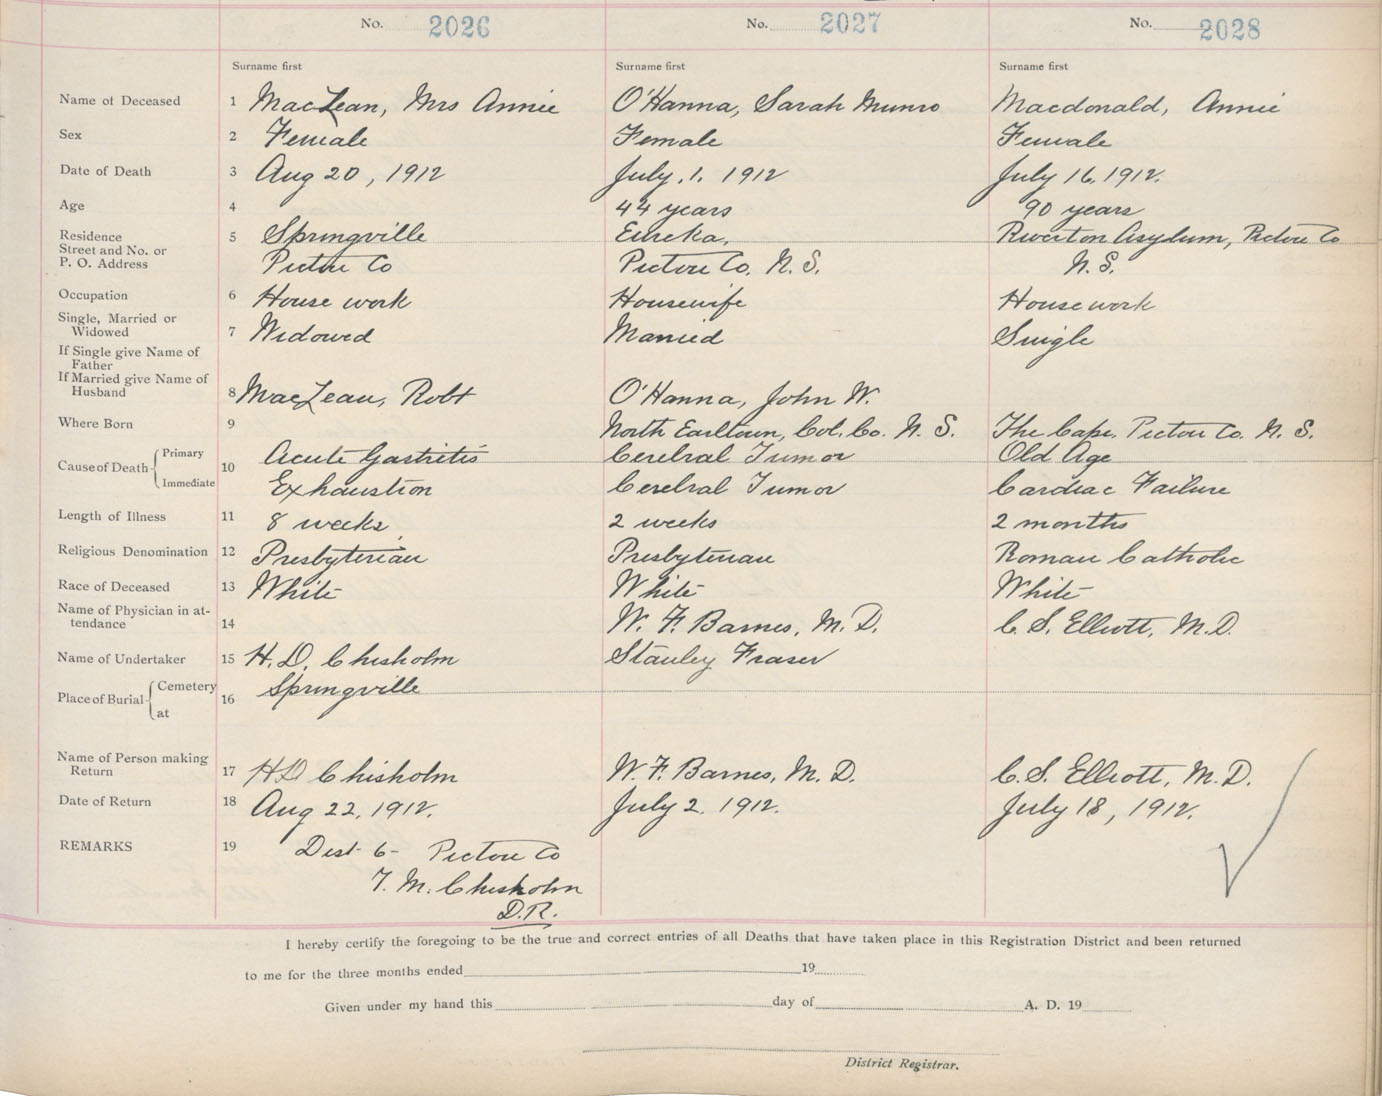 No. 2026 No. 2027 No. 2028
Surname first Surname first Surname first
Name of Deceased 1 MacLean, Mrs Annie O'Hanna, Sarah Munro Macdonald, Annie
Sex 2 Female Female Female
Date of Death 3 Aug 20, 1912 July. 1. 1912 July 16, 1912.
Age 4 44 years 90 years
Residence 5 Springville Eureka, Riverton Asylum, Pictou Co
Street and No. or
P. O. Address Pictou Co Pictou Co. N. S. N. S.
Occupation 6 House work Housewife House work
Single, Married or
Widowed 7 Widowed Married Single
If Single give Name of
Father
If Married give Name of
Husband 8 MacLean, Robt O'Hanna, John W.
Where Born 9 North Earltown, Col. Co. N. S. The Cape. Pictou Co. N. S.
Cause of Death Primary 10 Acute Gastritis Cerebral Tumor Old Age
Immediate Exhaustion Cerebral Tumor Cardiac Failure
Length of Illness 11 8 weeks 2 weeks 2 months
Religious Denomination 12 Presbyterian Presbyterian Roman Catholic
Race of Deceased 13 White White White
Name of Physician in at-
tendance 14 W. F. Barnes, M. D. C. S. Elliott, M. D.
Name of Undertaker 15 H. D. Chisholm Stanley Fraser
Place of Burial Cemetery 16 Springville
at
Name of Person making
Return 17 H D Chisholm W. F. Barnes, M. D. C. S. Elliott, M. D.
Date of Return 18 Aug 22, 1912. July 2. 1912. July 18, 1912.
REMARKS 19 Dist- 6- Pictou Co
T. M. Chisholm
D. R.
I hereby certify the foregoing to be the true and correct entries of all Deaths that have taken place in this Registration District and been returned
to me for the three months ended 19
Given under my hand this day of A. D. 19
District Registrar.